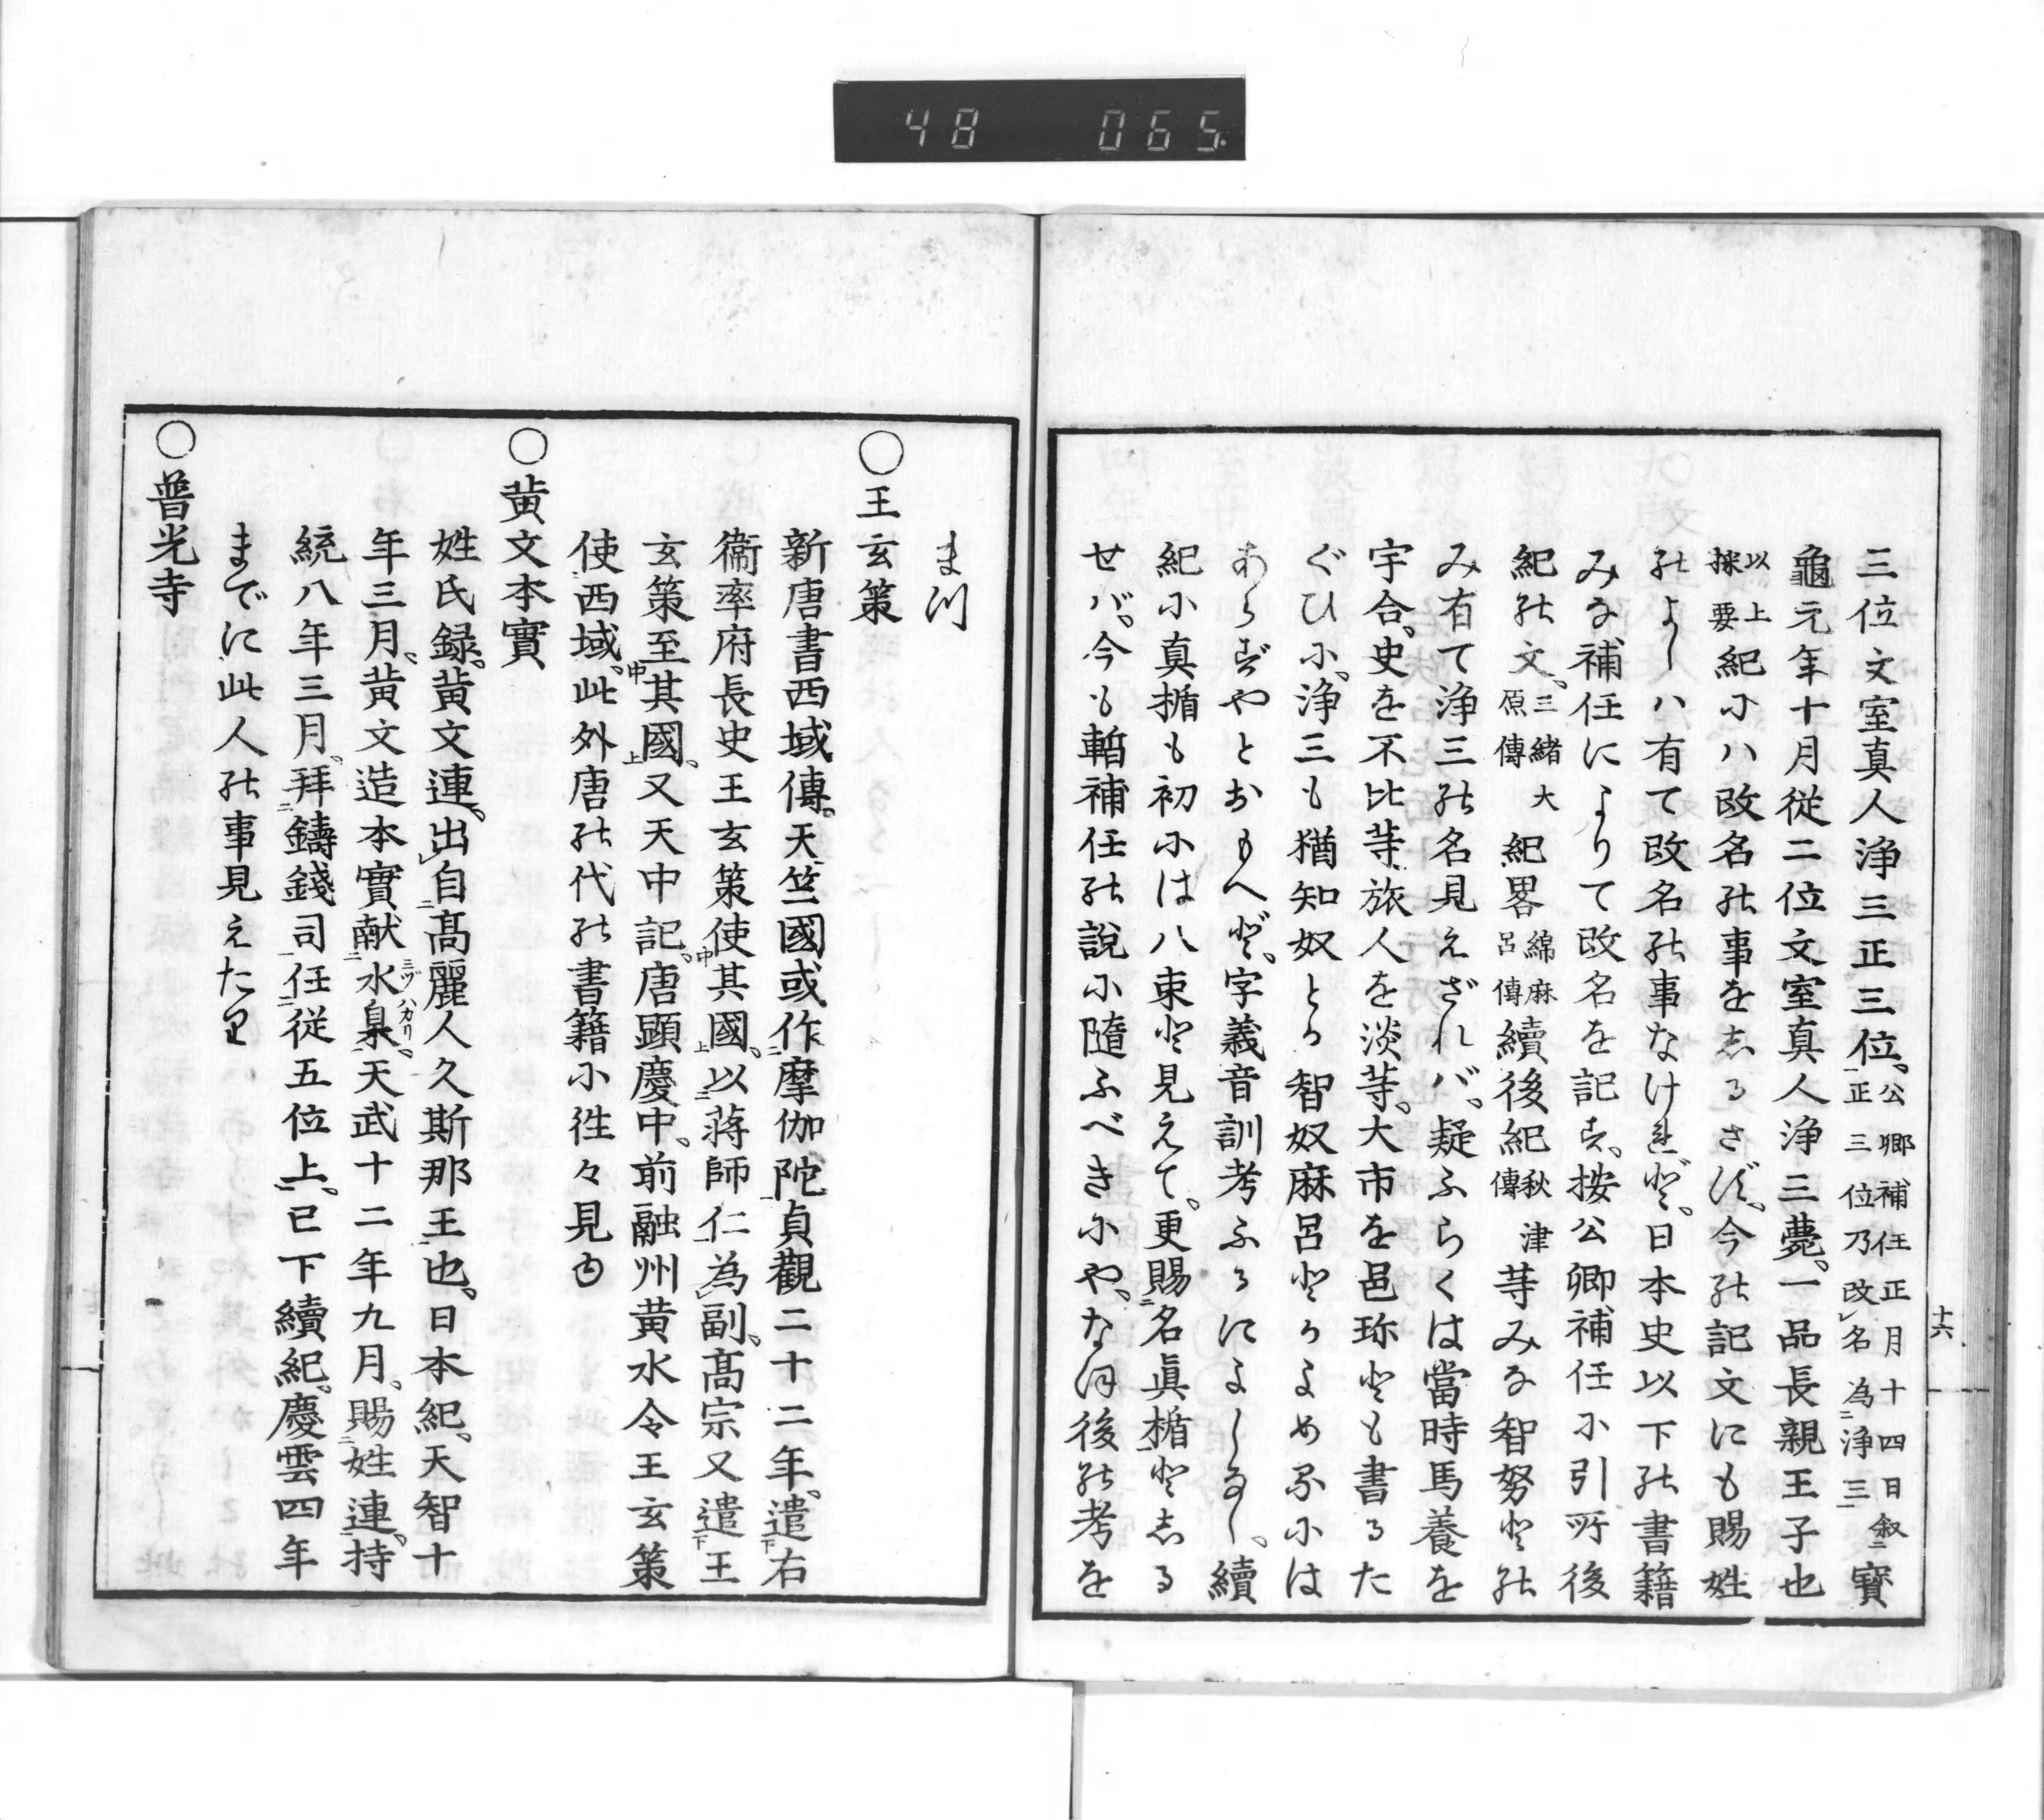 48 065
十六
三位文室真人浄三正三位。公卿補任正月十四日叙二正三位乃改名為浄三寳
龜元年十月従二位文室真人浄三薨。一品長親王子也
以上採要紀小ハ改名能事を志るさず。今能記文にも賜姓
能よしハ有て改名能事なけ連ど。日本史以下能書籍
みな補任によりて改名を記す。按公卿補任小引所後
紀能文。三緒大原傳紀畧綿麻呂傳續後紀秋津傳䓁みな智努と能
み有て浄三能名見えざれバ。疑ふらくは當時馬養を
宇合。史を不比䓁旅人を淡䓁。大市を邑珎とも書るた
ぐひ小。浄三も猶知奴とか智奴麻呂とかよめる小は
あらずやとおもへど。字義音訓考ふるによしなし。續
紀小真楯も初小は八束と見えて。更賜名眞楯と志る
せバ。今も暫補任能說小隨ふべき小や。なほ後能考を
まつ
○王玄策
新唐書西域傳。天竺國或作摩伽陀貞觀二十二年。遣右
衞率府長史王玄策使其國。以蒋師仁為副。髙宗又遣王
玄策至其國。又天中記。唐顕慶中。前融州黄水令王玄策
使西域。此外唐能代能書籍小徃々見ゆ
○黄文本實
姓氏録。黄文連。出自髙麗人久斯那王也。日本紀。天智十
年三月。黄文造本實献水臬ミヅハカリ。天武十二年九月。賜姓連。持
統八年三月。拜鑄錢司任従五位上。已下續紀。慶雲四年
までに此人能事見えたり
○普光寺